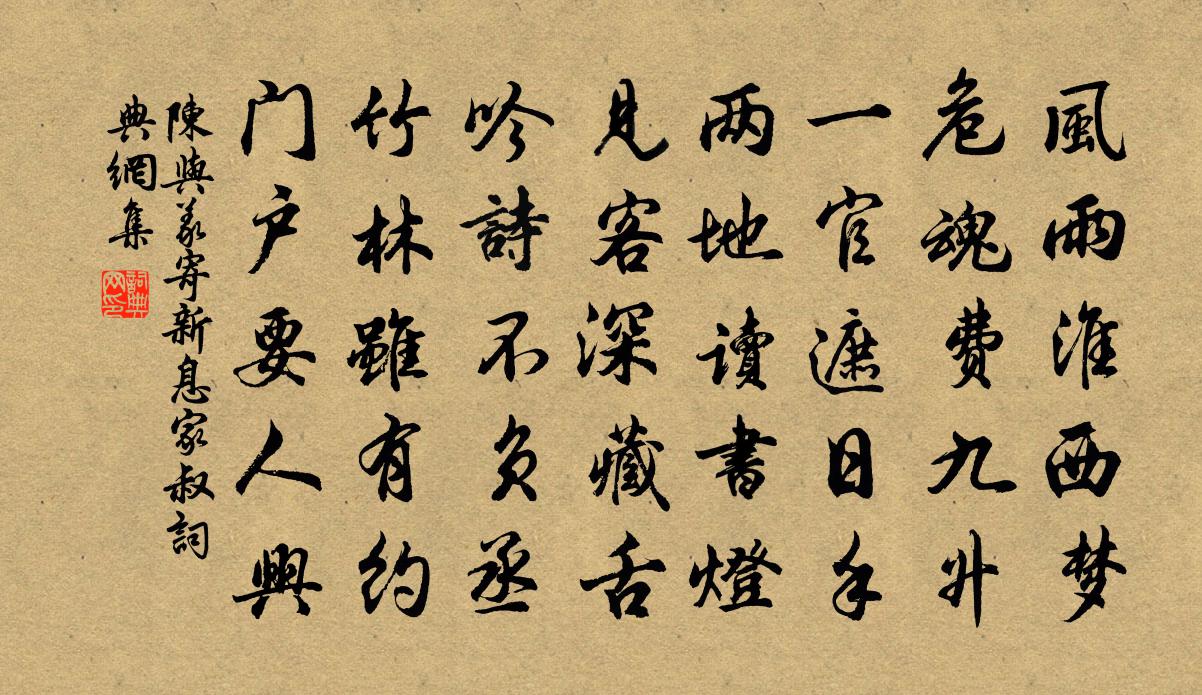 風雨淮西梦
危魂費九升
一官遮日手
两地讀書燈
見客深藏舌
吟詩不負丞
竹林雖有約
门户要人興
陳與義寄新息家叔詞
典網集
詞典网印